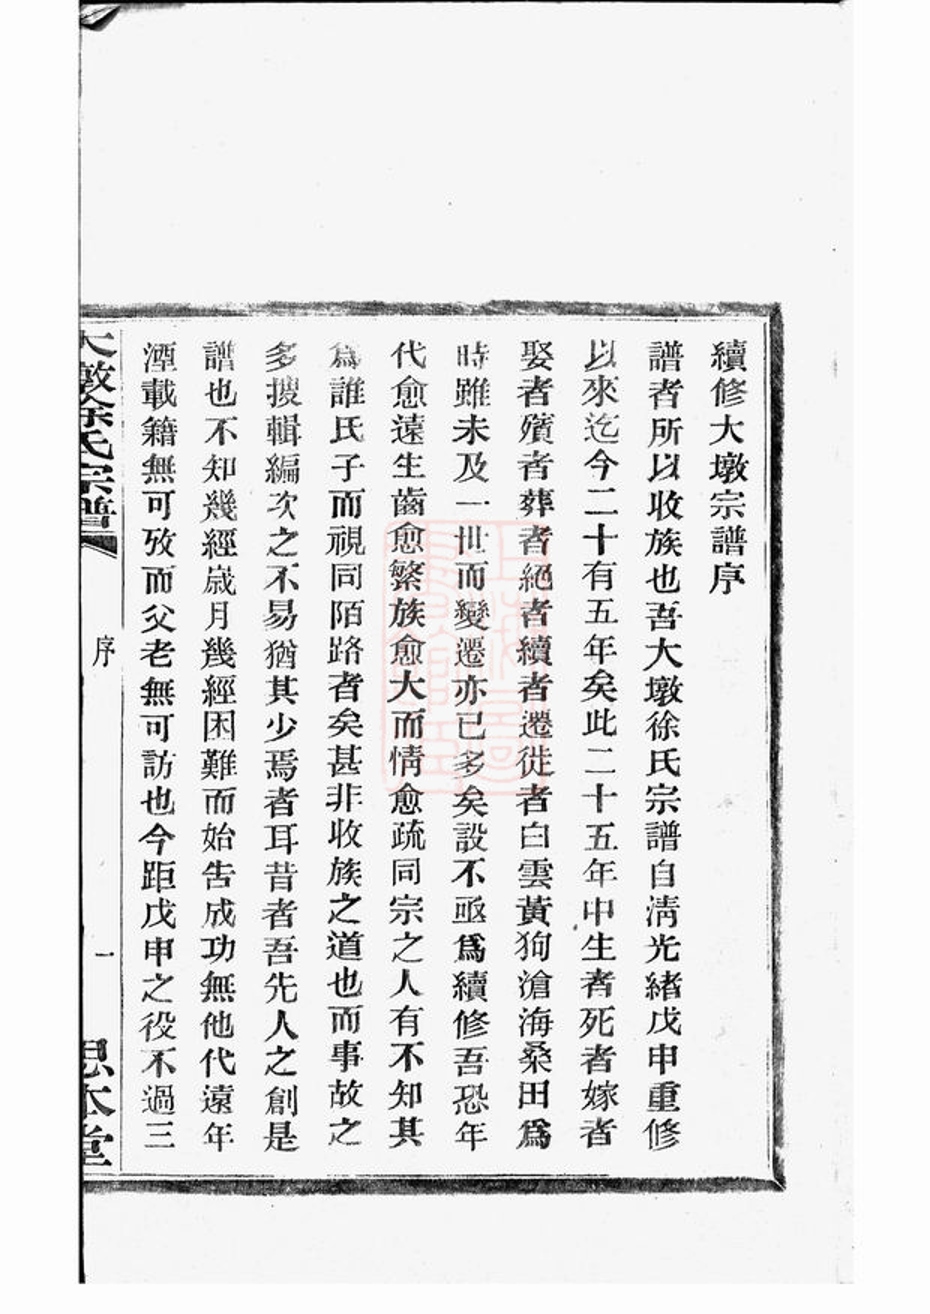 續修大墩宗譜序
譜者所以收族也吾大墩徐氏宗譜自清光緒戊申重修
以來迄今二十有五年矣此二十五年中生者死者嫁者
娶者殯者葬者絕者續者遷徙者白雲黃狗滄海桑田爲
時雖未及一世而變遷亦已多矣設不亟爲續修吾恐年
代愈遠生齒愈繁族愈大而情愈疏同宗之人有不知其
爲誰氏子而視同陌路者矣甚非收族之道也而事故之
多搜輯編次之不易猶其少焉者耳昔者吾先人之創是
譜也不知幾經歲月幾經困難而始告成功無他代遠年
湮載籍無可攷而父老無可訪也今距戊申之役不過三
大墩徐氏宗譜
序
一
思本堂